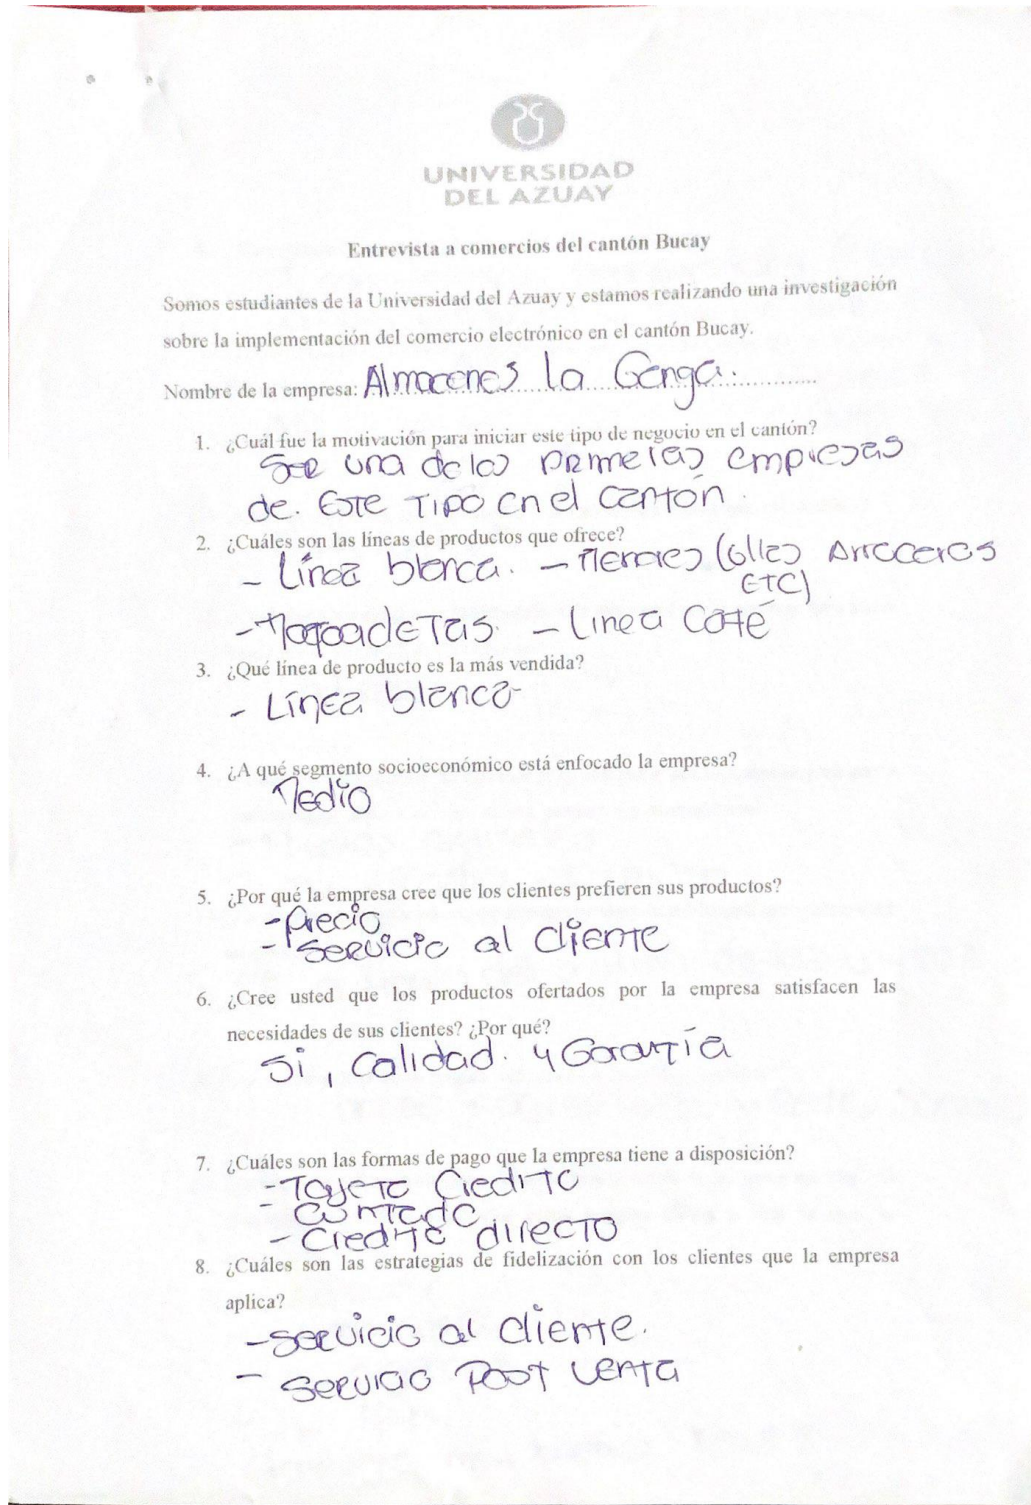 UNIVERSIDAD
DEL AZUAY
Entrevista a comercios del cantón Bucay
Somos estudiantes de la Universidad del Azuay y estamos realizando una investigación
sobre la implementación del comercio electrónico en el cantón Bucay.
Nombre de la empresa: Almacenes la Ganga.
1. ¿Cuál fue la motivación para iniciar este tipo de negocio en el cantón?
Ser una de las primeras empresas
de. Este Tipo en el cantón.
2. ¿Cuáles son las líneas de productos que ofrece?
- Línea blanca. - Menajes (ollas Arroceras
ETC)
- - Linea Café
3. ¿Qué línea de producto es la más vendida?
- Línea blanca
4. ¿A qué segmento socioeconómico está enfocado la empresa?
Medio
5. ¿Por qué la empresa cree que los clientes prefieren sus productos?
- Precio
- Servicio al cliente
6. ¿Cree usted que los productos ofertados por la empresa satisfacen las
necesidades de sus clientes? ¿Por qué?
Si, calidad. y Garantía
7. ¿Cuáles son las formas de pago que la empresa tiene a disposición?
- Tarjeta Credito
- Contado
- Credito directo
8. ¿Cuáles son las estrategias de fidelización con los clientes que la empresa
aplica?
- Servicio al cliente.
- Servicio Post Venta